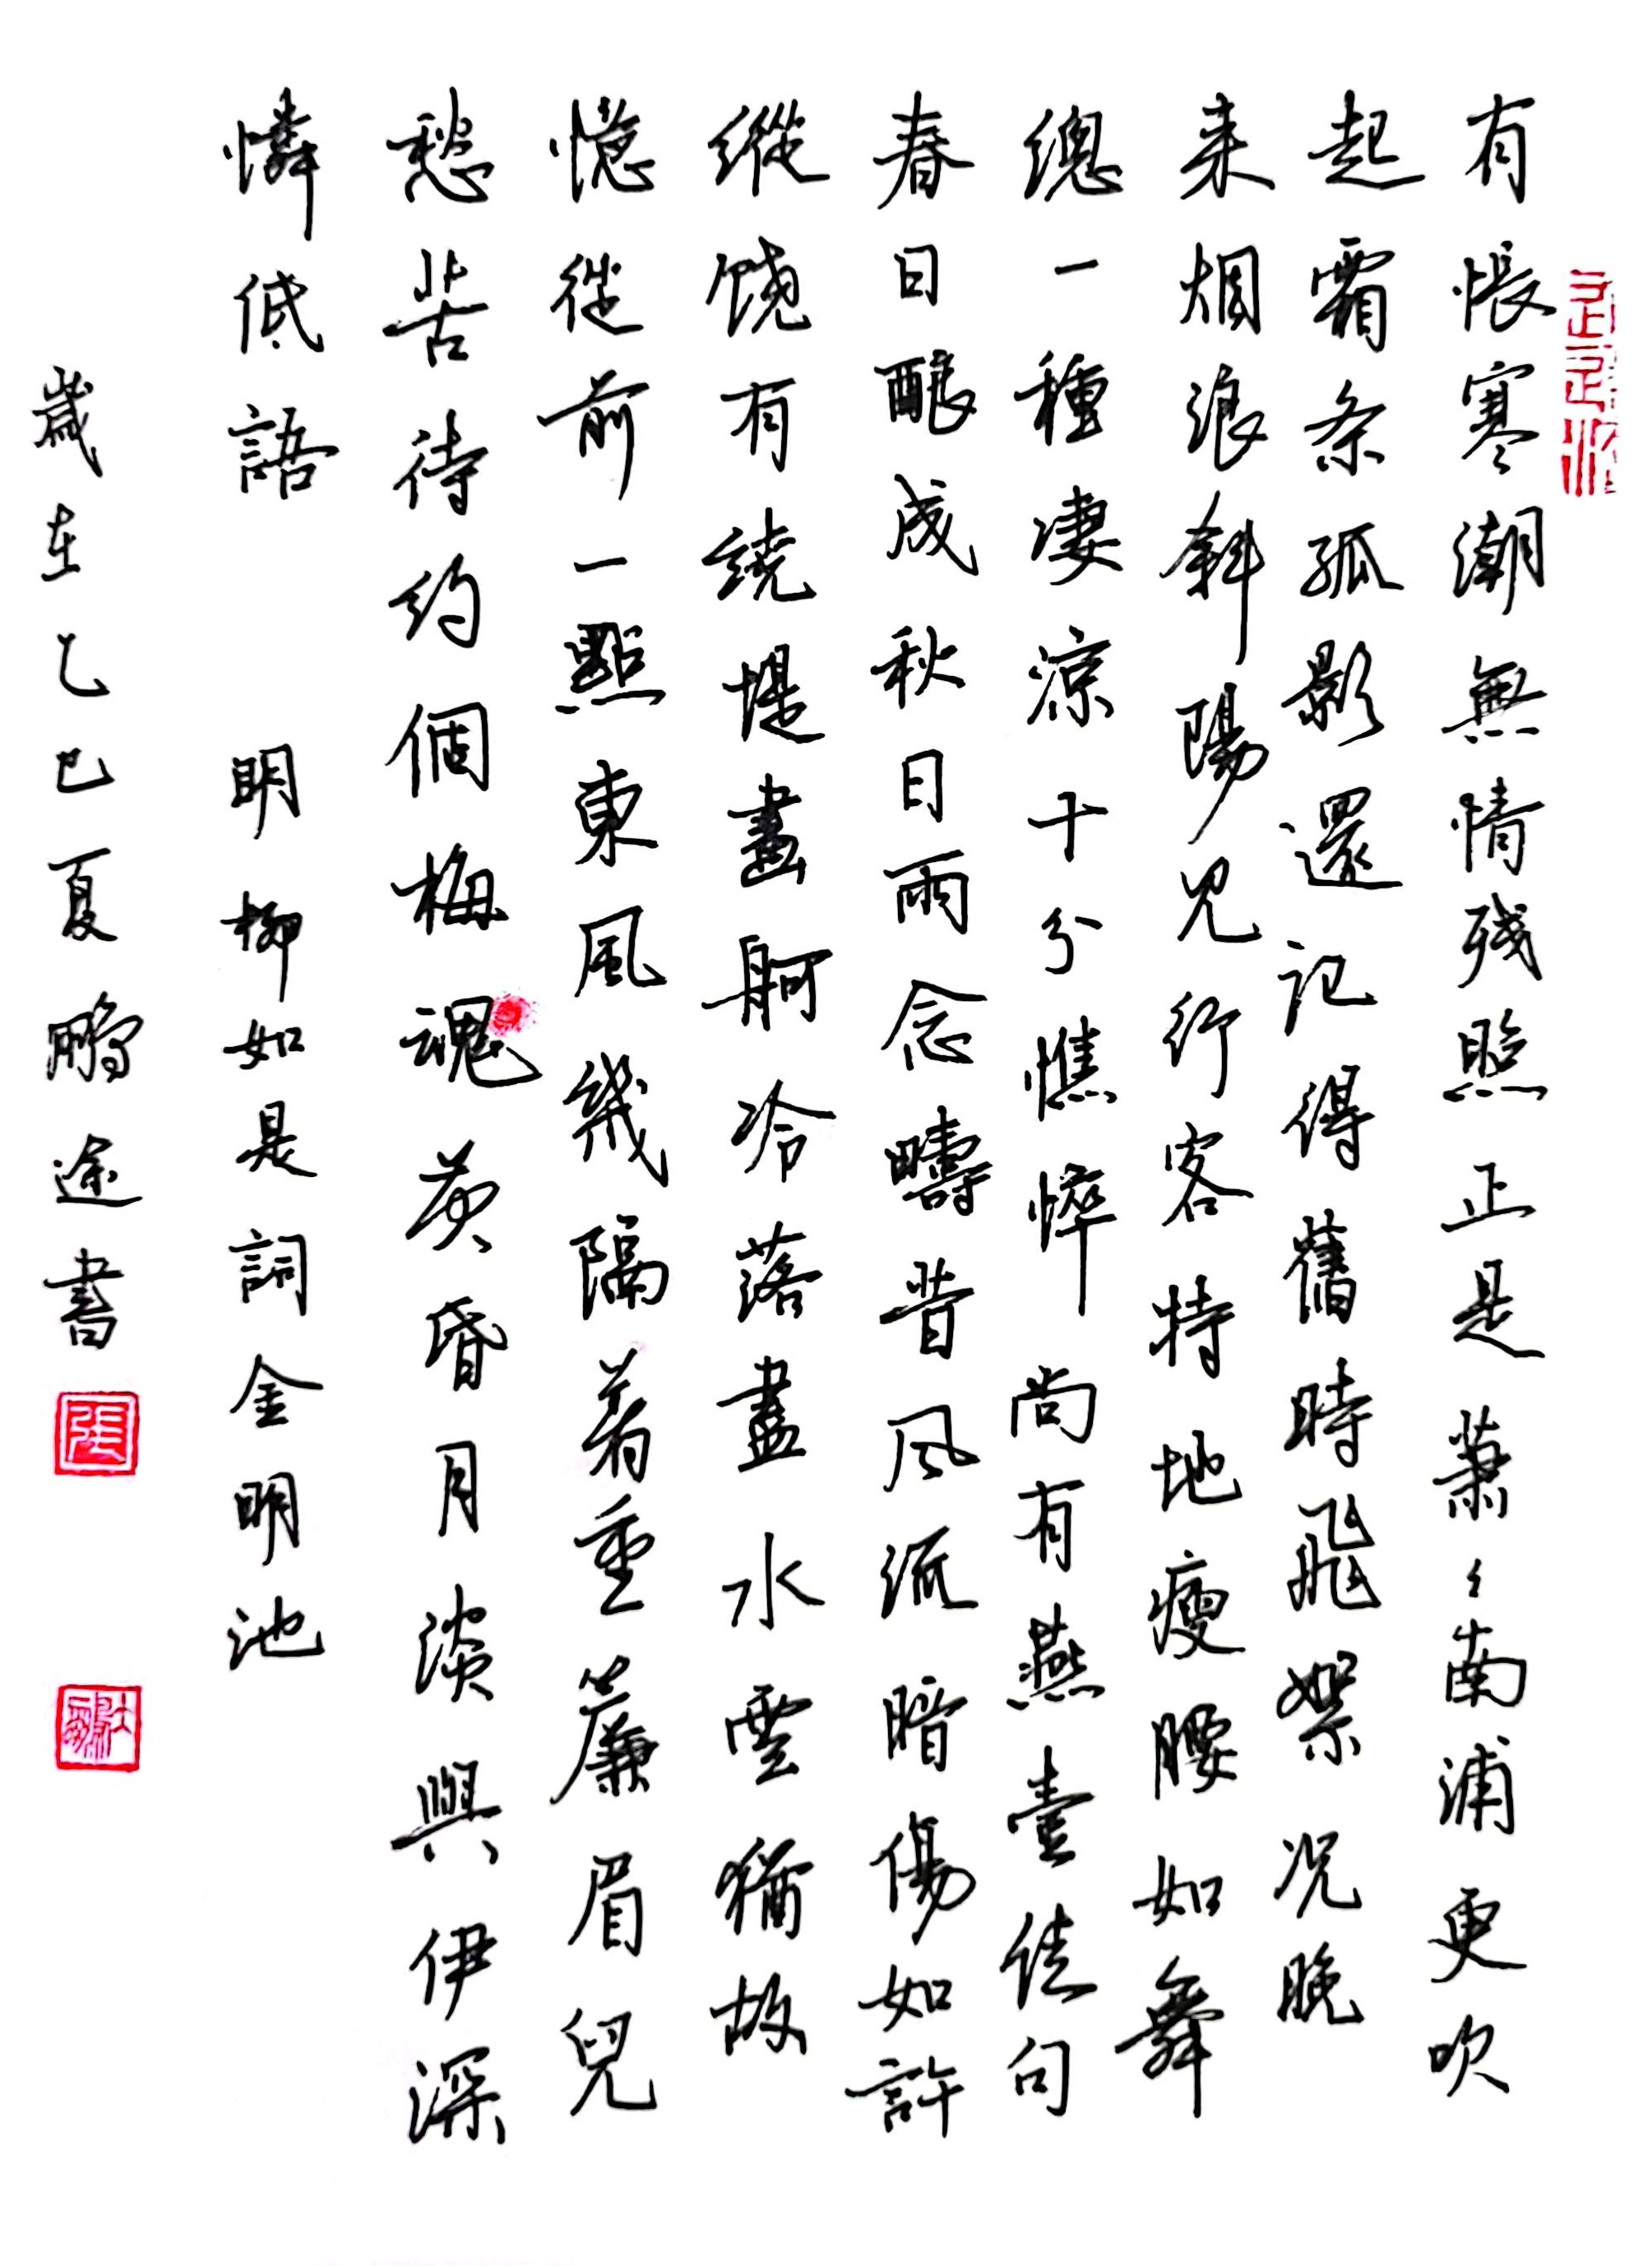 有悵寒潮無情残照正是蕭々南浦更吹
起霜条孤影還記得舊時飛絮况晚
来烟浪斜陽見行客特地瘦腰如舞
總一種凄涼十分憔悴尚有燕臺佳句
春日酿成秋日雨念疇昔风流暗傷如許
縱饶有繞堤畫舸冷落盡水雲猶故
憶從前一點東風幾隔着重簾眉兒
愁苦待约個梅魂黄昏月淡與伊深
憐低語
明柳如是詞金明池
歲在乙巳夏鹏途書
張